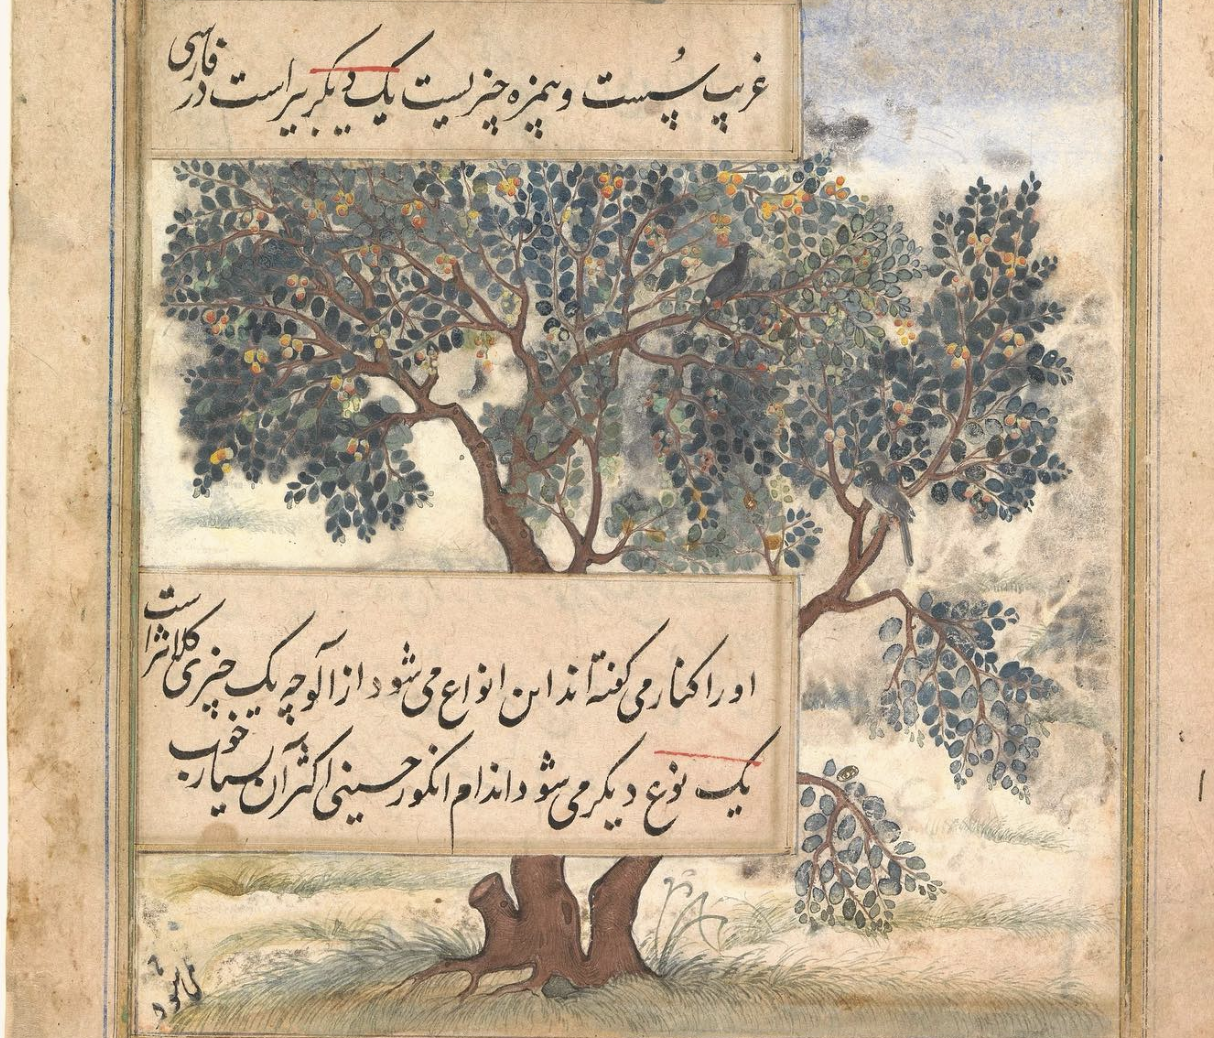 غریب سُست و بیمزه چیزیست یک دیگر بیر است در فارسی
او را کنار می گفته اند این انواع می شود از آلوچه یک چیزی کلانتر است
یک نوع دیگر می شود اندام انگور حسینی اکثر آن بسیار خوب